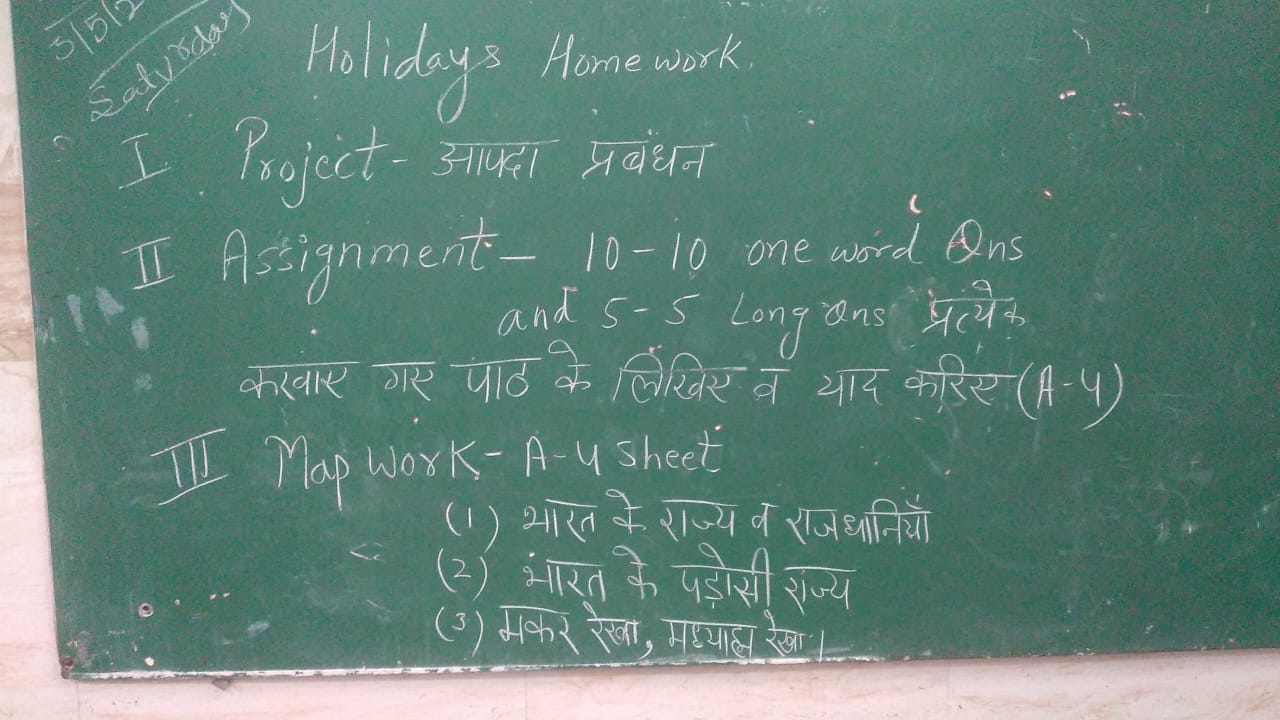 3/5/2
Saturday
Holidays Homework.
I Project - आपदा प्रबंधन
II Assignment - 10-10 one word Qns
and 5-5 Long Qns प्रत्येक
करवाए गए पाठ के लिखिए व याद करिए (A-4)
III Map Work - A-4 Sheet
(1) भारत के राज्य व राजधानियाँ
(2) भारत के पड़ोसी राज्य
(3) मकर रेखा, मध्याह्न रेखा।